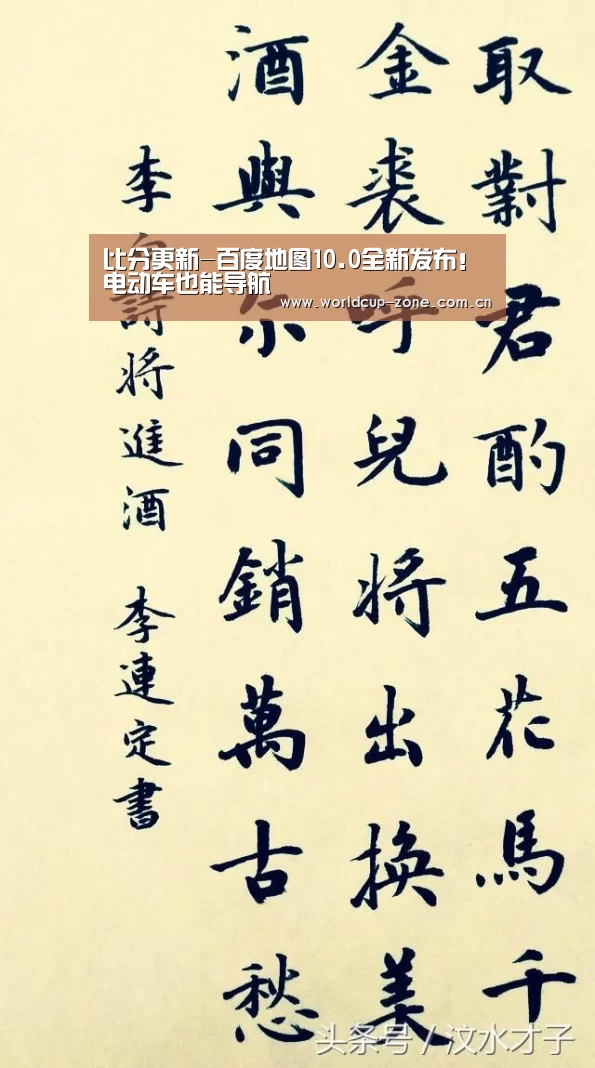 取對君酌五花馬千
金裘呼兒將出換美
酒與尔同銷萬古愁
李白詩將進酒 李連定書
比分更新-百度地图10.0全新发布！
电动车也能导航
www.worldcup-zone.com.cn
头条号 / 汶水才子